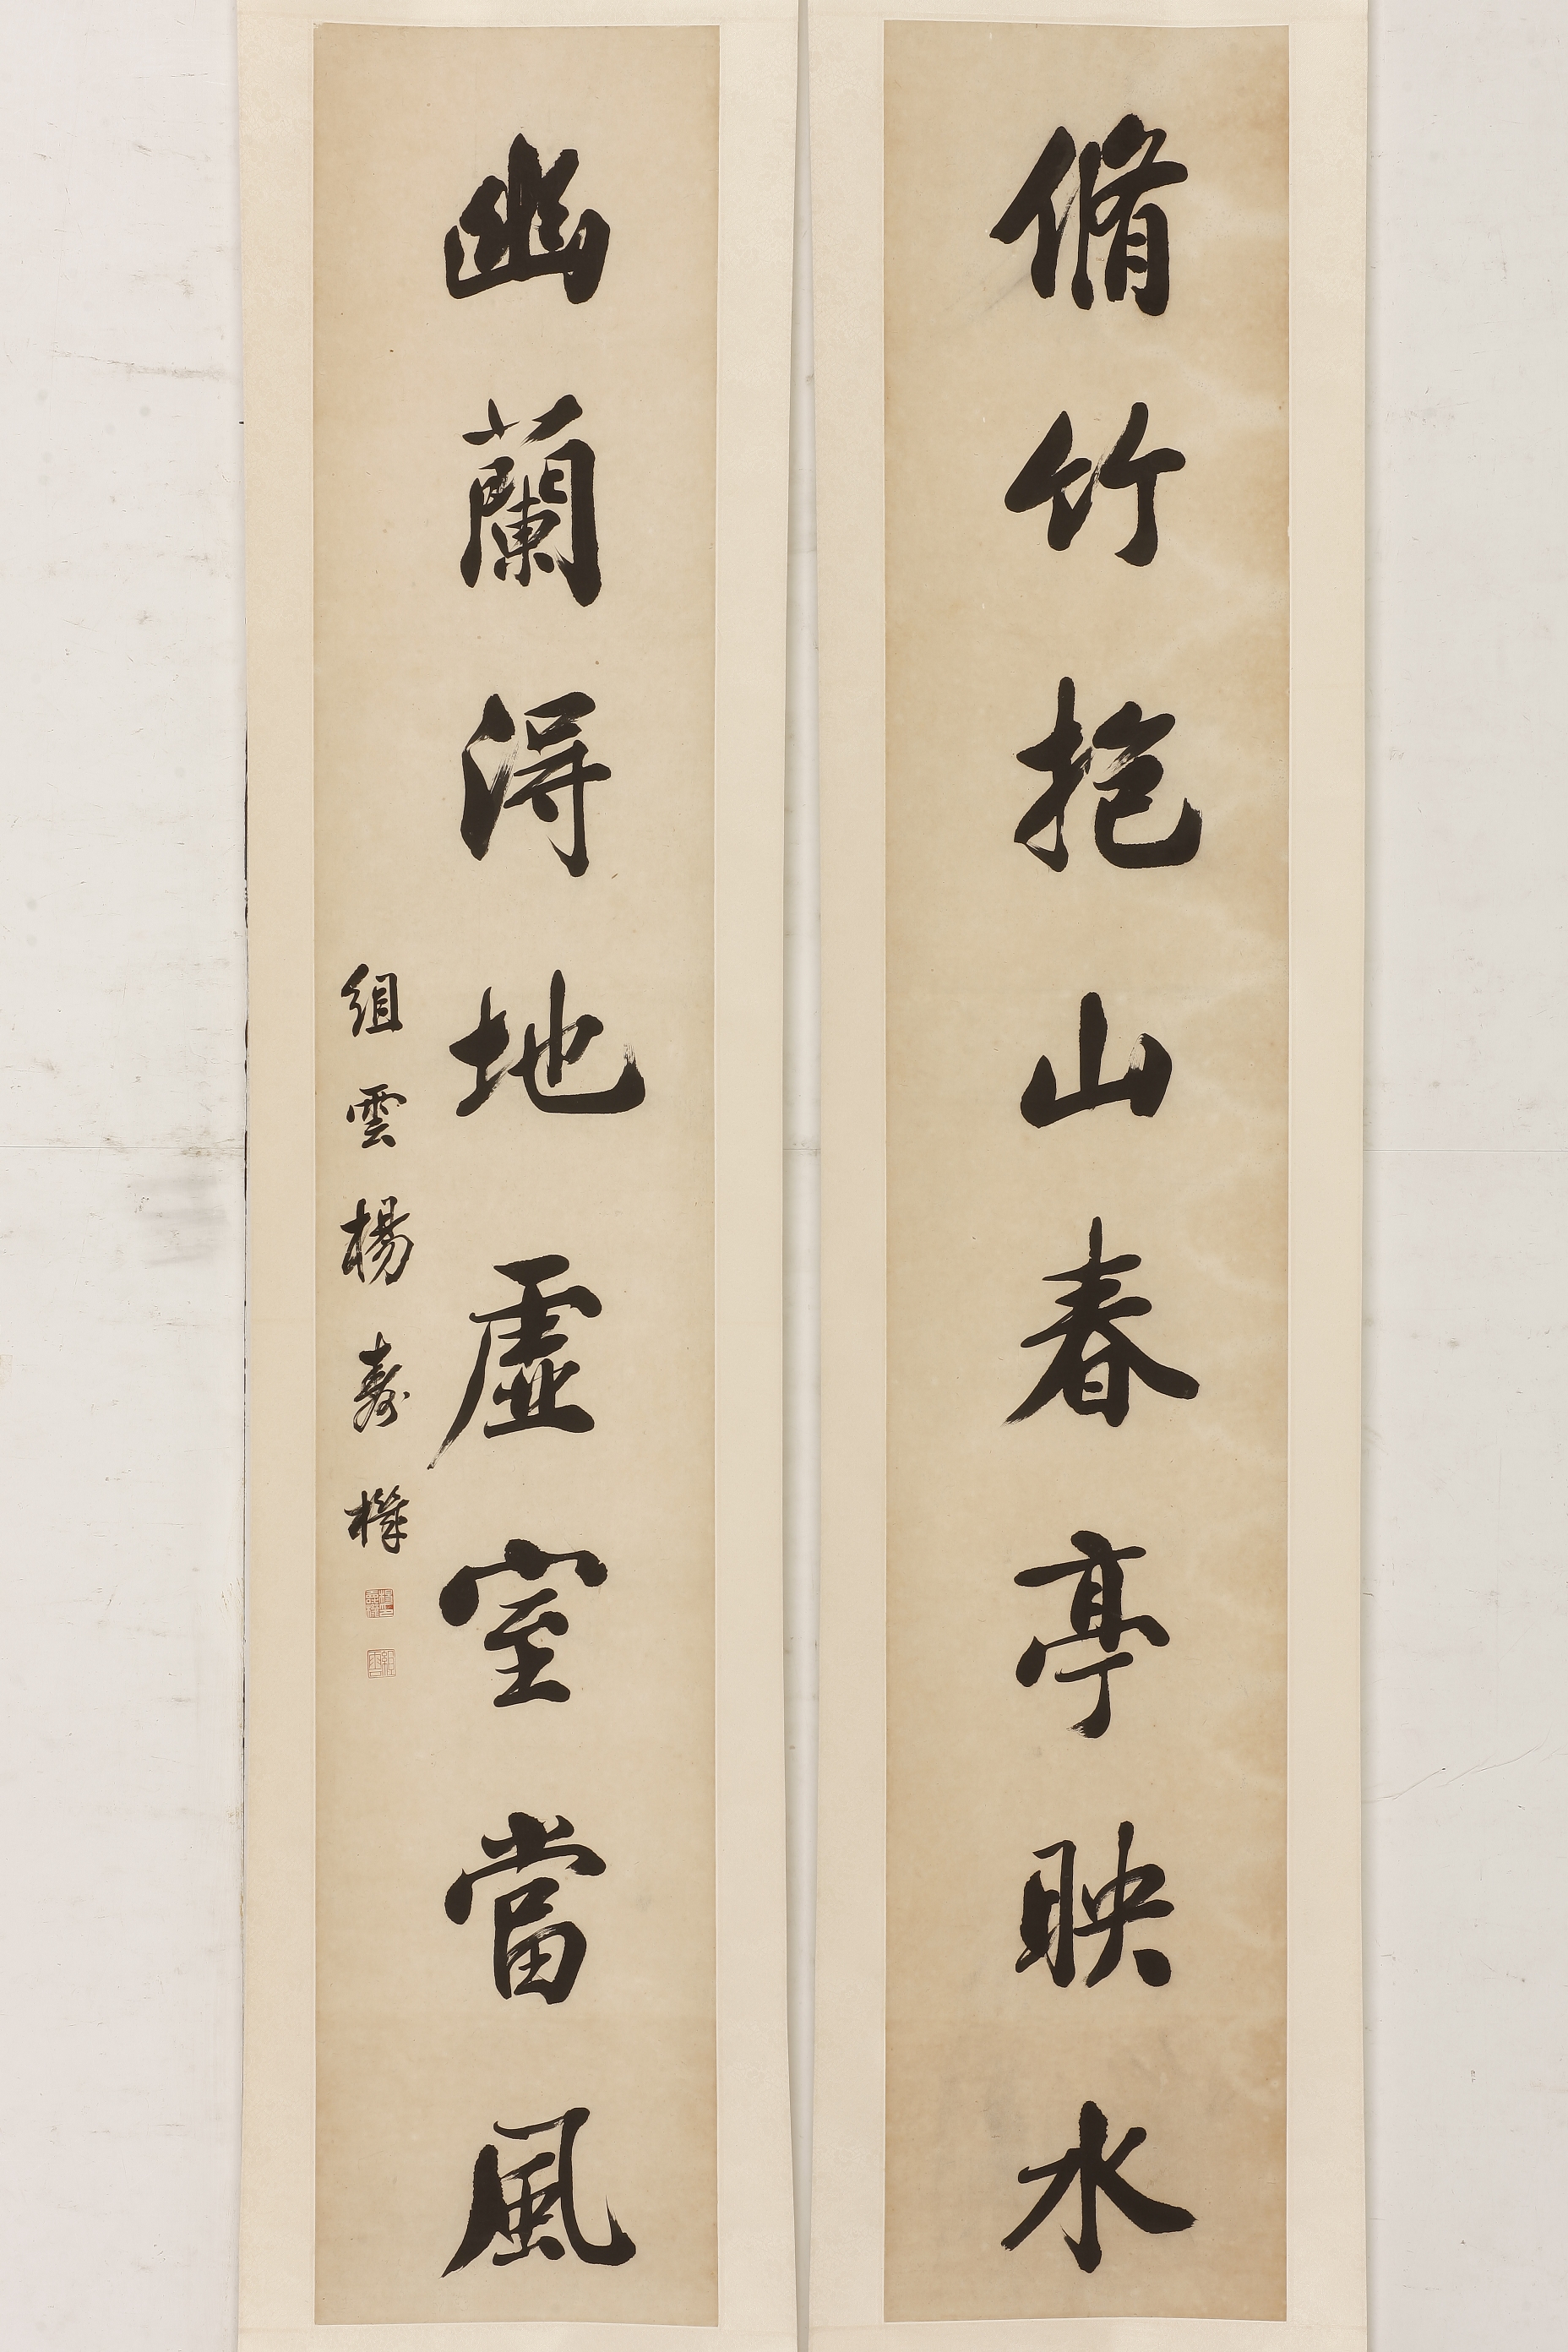 脩竹抱山春亭映水
幽蘭得地虛室當風
組雲楊壽樑